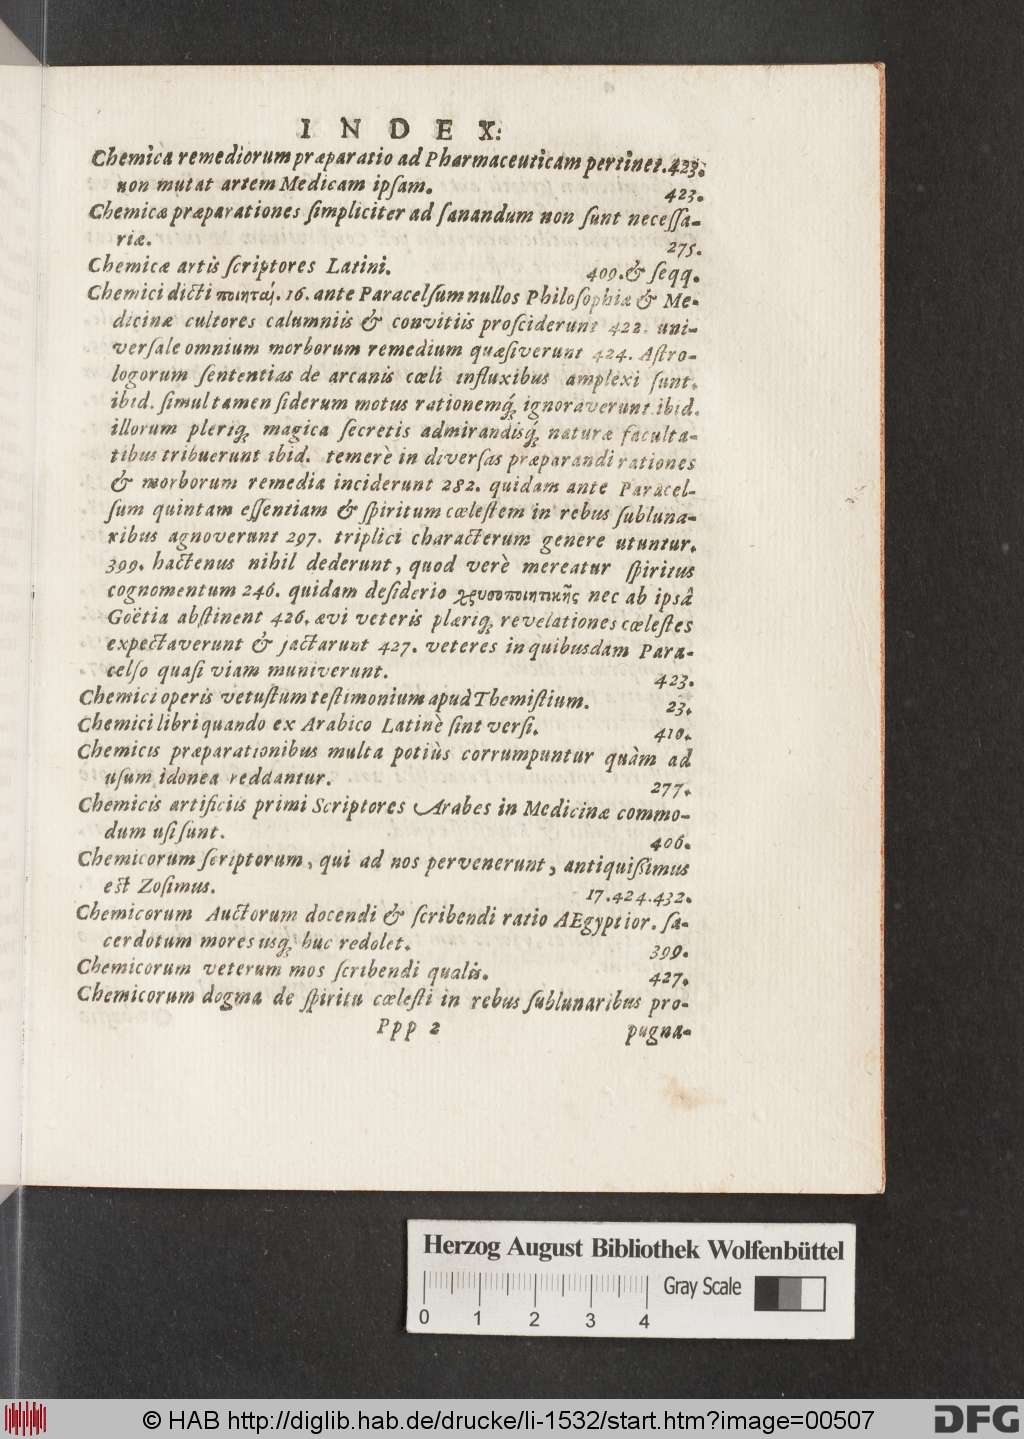 INDEX.
Chemica remediorum præparatio ad Pharmaceuticam pertinet. 423.
non mutat artem Medicam ipſam. 423.
Chemicæ præparationes ſimpliciter ad ſanandum non ſunt neceſſa-
riæ. 275.
Chemicæ artis ſcriptores Latini. 409. & ſeqq.
Chemici dicti ποιηταί. 16. ante Paracelſum nullos Philoſophiæ & Me-
dicinæ cultores calumniis & convitiis proſciderunt 422. uni-
verſale omnium morborum remedium quæſiverunt 424. Aſtro-
logorum ſententias de arcanis cœli influxibus amplexi ſunt.
ibid. ſimul tamen ſiderum motus rationemq́; ignoraverunt. ibid.
illorum pleriq; magica ſecretis admirandisq́; naturæ faculta-
tibus tribuerunt ibid. temerè in diverſas præparandi rationes
& morborum remedia inciderunt 282. quidam ante Paracel-
ſum quintam eſſentiam & ſpiritum cœleſtem in rebus ſubluna-
ribus agnoverunt 297. triplici characterum genere utuntur.
399. hactenus nihil dederunt, quod verè mereatur ſpiritus
cognomentum 246. quidam deſiderio χρυσοποιητικῆς nec ab ipsâ
Goëtia abſtinent 426. ævi veteris plæriq; revelationes cœleſtes
expectaverunt & jactarunt 427. veteres in quibusdam Para-
celſo quaſi viam muniverunt. 423.
Chemici operis vetuſtum teſtimonium apud Themiſtium. 23.
Chemici libri quando ex Arabico Latinè ſint verſi. 410.
Chemicis præparationibus multa potiùs corrumpuntur quàm ad
uſum idonea reddantur. 277.
Chemicis artificiis primi Scriptores Arabes in Medicinæ commo-
dum uſi ſunt. 406.
Chemicorum ſcriptorum, qui ad nos pervenerunt, antiquiſſimus
eſt Zoſimus. 17. 424. 432.
Chemicorum Auctorum docendi & ſcribendi ratio AEgyptior. ſa-
cerdotum mores usq; huc redolet. 399.
Chemicorum veterum mos ſcribendi qualis. 427.
Chemicorum dogma de ſpiritu cœleſti in rebus ſublunaribus pro-
Ppp 2 pugna-
Herzog August Bibliothek Wolfenbüttel
Gray Scale
0 1 2 3 4
© HAB http://diglib.hab.de/drucke/li-1532/start.htm?image=00507
DFG